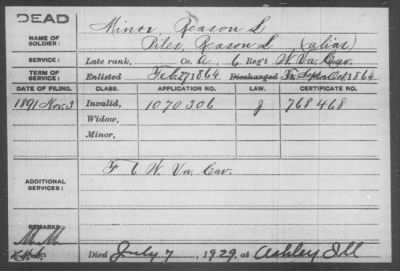 DEAD
NAME OF SOLDIER: Minor, Reason L
Piles, Reason L (alias)
SERVICE: Late rank, Co. A, 6 Reg't W. Va. Cav.
TERM OF SERVICE: Enlisted Feb. 27, 1864 Discharged Oct 1864
DATE OF FILING. CLASS. APPLICATION NO. LAW. CERTIFICATE NO.
1891 Nov. 3 Invalid, 1070306 J 768468
Widow,
Minor,
ADDITIONAL SERVICES: F 6 W. Va. Cav.
REMARKS
Died July 7, 1929, at Ashley Ill